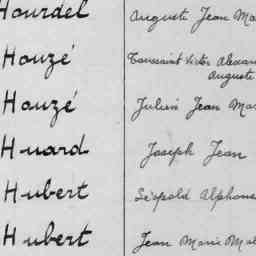 Hourdel Auguste Jean Ma
Houzé Toussaint Victor Alexan
Auguste
Houzé Julien Jean Mar
Huard Joseph Jean
Hubert Léopold Alphons
Hubert Jean Marie Mat